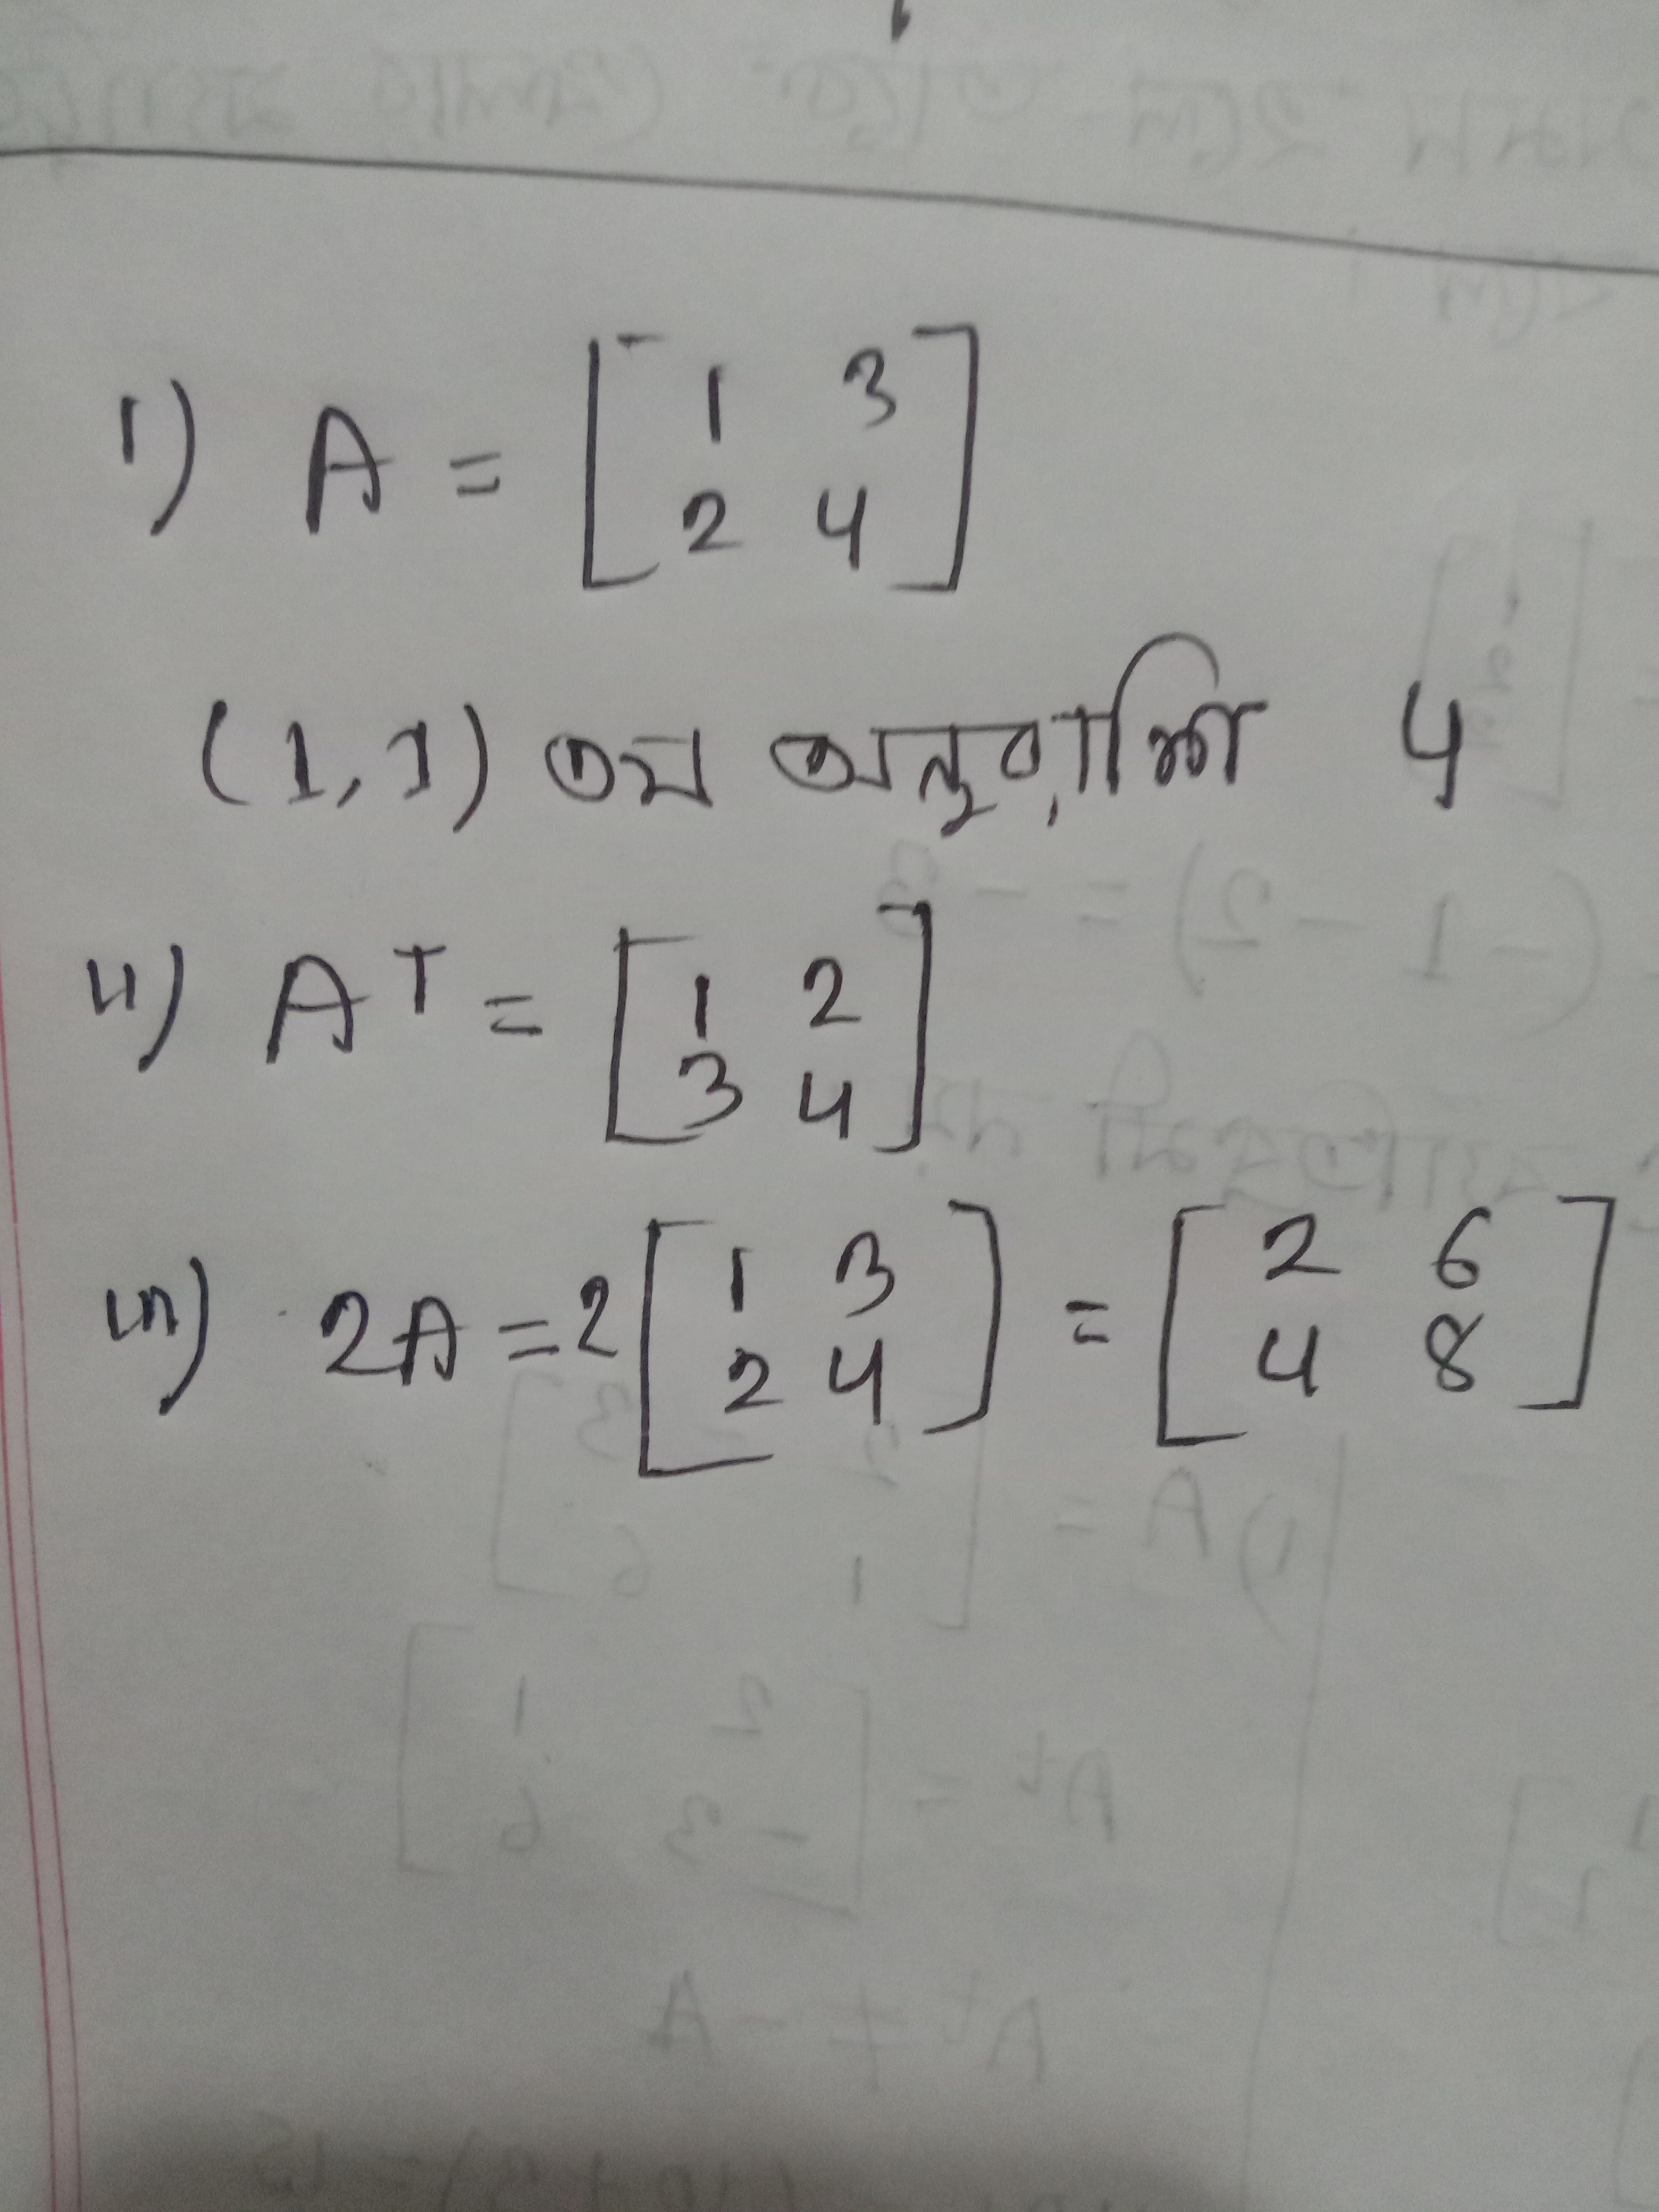 i) A = [1 3
2 4]
(1,1) তম অনুরাশি 4
ii) A^T = [1 2
3 4]
iii) 2A = 2 [1 3 = [2 6
2 4] 4 8]